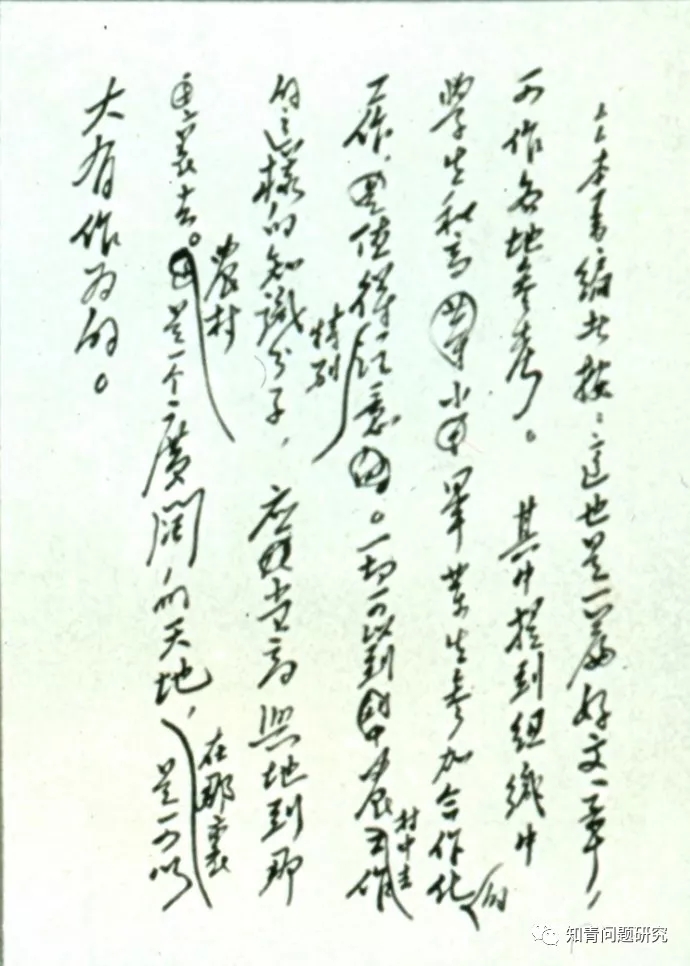 本书編者按：這也是一篇好文章，
可作各地参考。其中提到組織中
學生和高小畢業生参加合作化的
工作，值得特别注意。一切可以到農村中去工作
的這樣的知識分子，應當高興地到那
裏去。農村是一个廣闊的天地，在那裏是可以
大有作为的。
知青问题研究